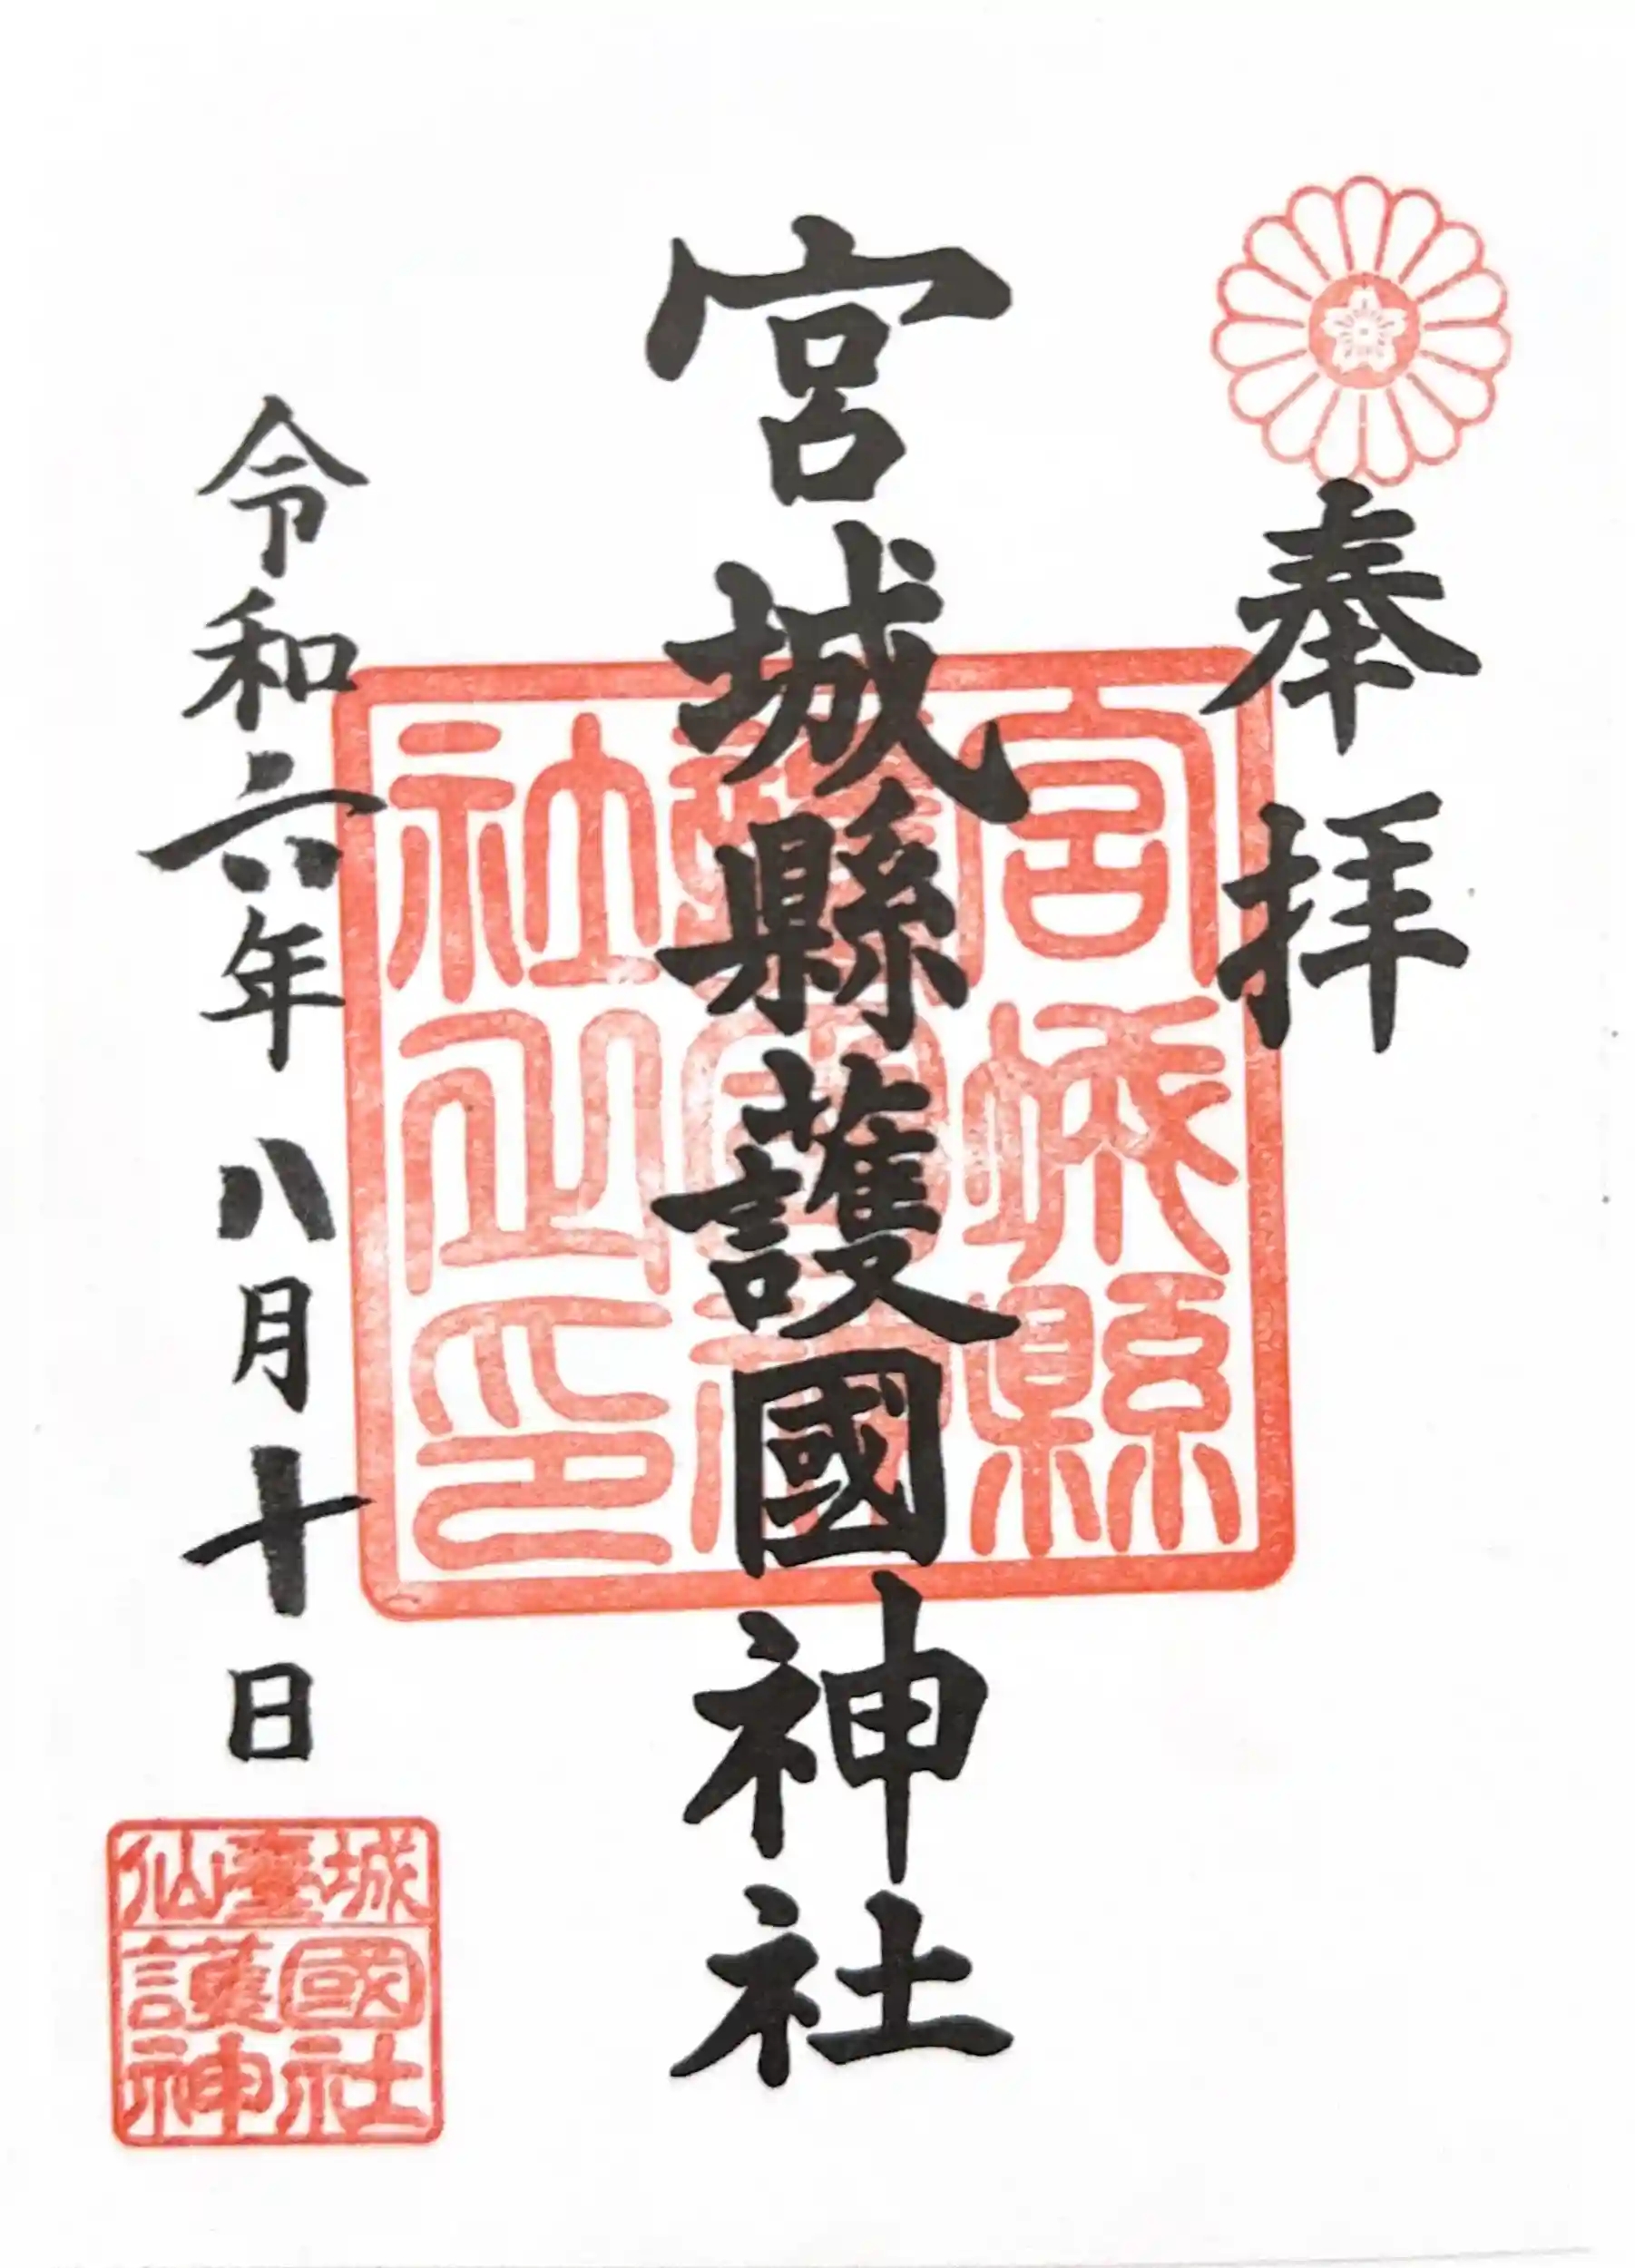 奉拝
宮城縣護國神社
宮城縣
護國神
社之印
令和六年 八月十日
仙臺城
護國
神社